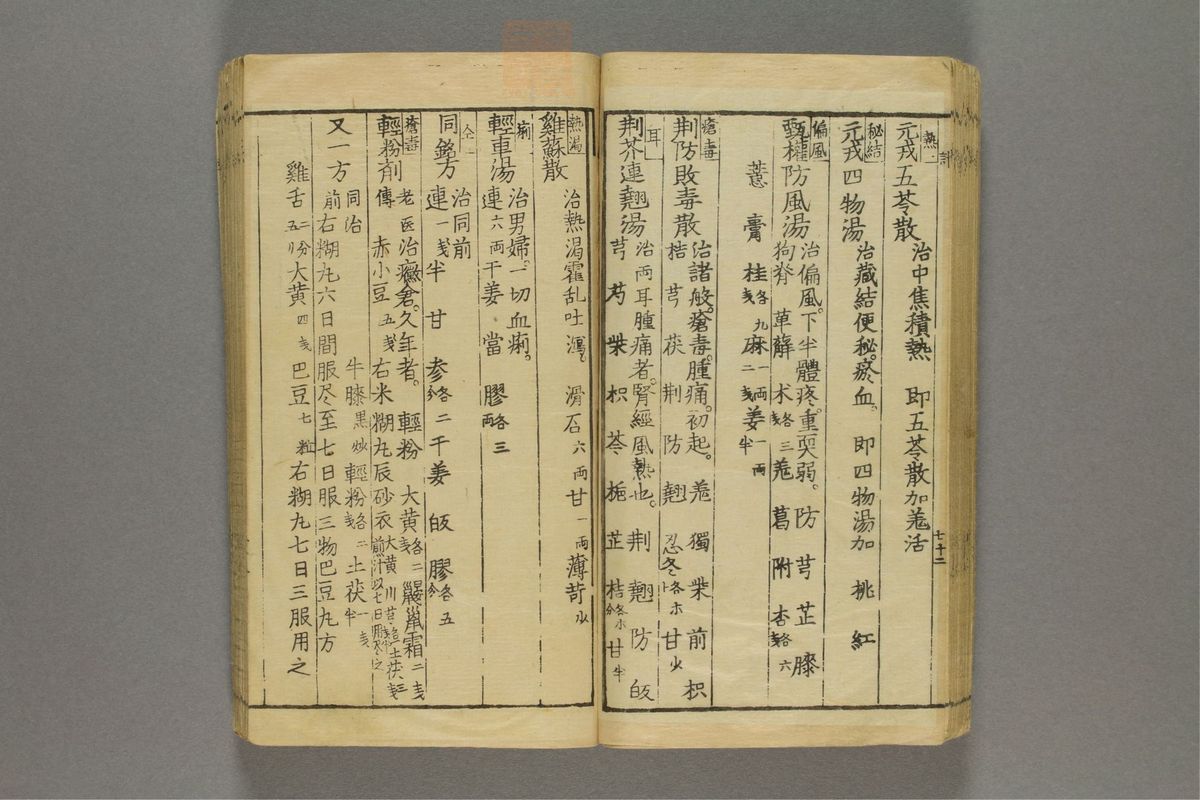 熱
元戎五苓散
治中焦積熱 即五苓散加羗活
秘結
元戎四物湯
治藏結便秘。瘀血。 即四物湯加 桃 紅
偏風
甄權防風湯
治偏風。下半體疼。重耎弱。 防 芎 芷 膝
狗脊 萆薢 术各三戔 羗 葛 附 杏各六戔
薏 膏 桂各九戔 麻一両二戔 姜一両半
瘡毒
荆防敗毒散
治諸般。瘡毒。腫痛。初起。 羗 獨 柴 前 枳
桔 芎 茯 荆 防 翹 忍冬各朩 甘少
耳
荆芥連翹湯
治両耳腫痛者。腎經風熱也。 荆 翹 防 皈
芎 芍 柴 枳 芩 梔 芷 桔各朩分 甘半
七十二
熱渇
雞蘇散
治熱渇霍乱吐瀉。 滑石六両 甘一両 薄苛少
痢
輕車湯
治男婦。一切血痢。
連六両 干姜 當 膠各三両
仝
同銘方
治同前
連一戔半 甘 参各二分 干姜 皈 膠各五分
瘡毒
輕粉剤
老医治癥瘡。久年者。 輕粉 大黄各二戔 鼹鼠霜二戔
傳 赤小豆五戔 右米糊丸辰砂衣大黄 川芎 土茯三戔
煎汁以七日服尽之
又一方
同治 牛膝黒炒 輕粉各二戔 土茯一戔半
前右糊丸六日間服尽至七日服三物巴豆丸方
雞舌二分五リ 大黄四戔 巴豆七粒 右糊丸七日三服用之